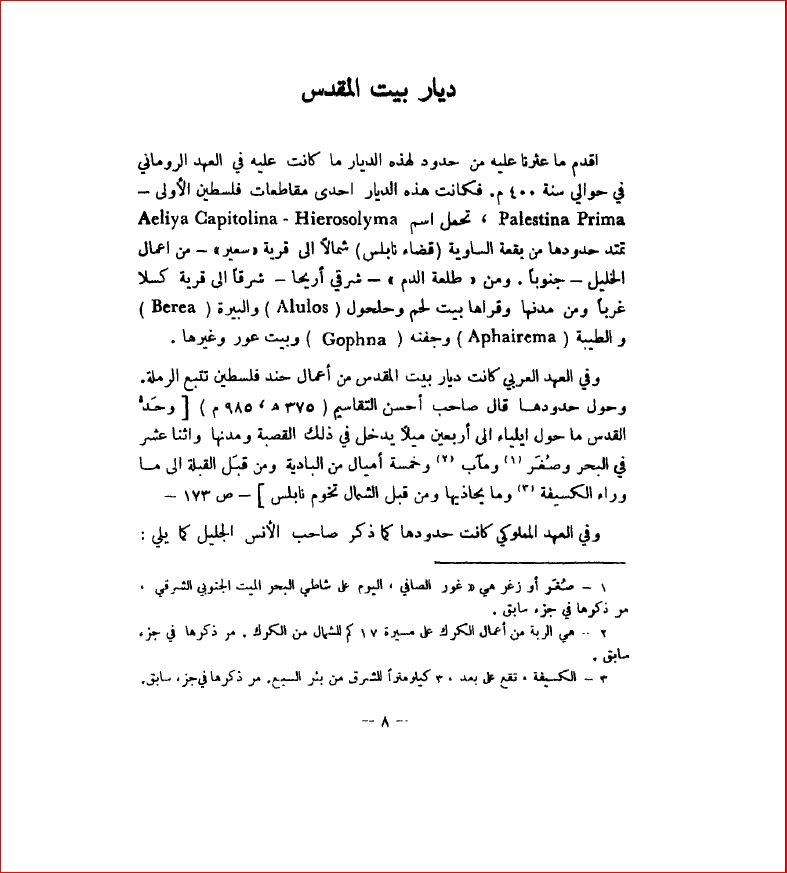 ديار بيت المقدس
اقدم ما عثرنا عليه من حدود لهذه الديار ما كانت عليه في العهد الروماني
في حوالي سنة ٤٠٠ م. فكانت هذه الديار احدى مقاطعات فلسطين الأولى –
Palestina Prima ، تحمل اسم Aeliya Capitolina - Hierosolyma
تمتد حدودها من بقعة الساوية (قضاء نابلس) شمالاً الى قرية «سعير» – من اعمال
الخليل – جنوباً . ومن « طلعة الدم » – شرقي أريحا – شرقاً الى قرية كسلا
غرباً ومن مدنها وقراها بيت لحم وحلحول ( Alulos ) والبيرة ( Berea )
و الطيبة ( Aphairema ) وجفنه ( Gophna ) وبيت عور وغيرها .
وفي العهد العربي كانت ديار بيت المقدس من أعمال حند فلسطين تتبع الرملة.
وحول حدودهــا قال صاحب أحسن التقاسيم ( ٣٧٥ ه ، ٩٨٥ م ) [ وحَدُّ
القدس ما حول ايلياء الى أربعين ميلاً يدخل في ذلك القصبة ومدنها واثنا عشر
في البحر وصُغَر (١) ومآب (٢) وخمسة أميال من البادية ومن قبَل القبلة الى مــا
وراء الكسيفة (٣) وما يحاذيها ومن قبل الشمال تخوم نابلس ] – ص ١٧٣ –
وفي العهد المملوكي كانت حدودها كما ذكر صاحب الأنس الجليل كما يلي :
١ – صُغَر أو زغر هي « غور الصافي ، اليوم على شاطي البحر الميت الجنوبي الشرقي .
مر ذكرها في جزء سابق .
٢ – هي الربة من أعمال الكرك على مسيرة ١٧ كم للشمال من الكرك . مر ذكرها في جزء
سابق .
٣ – الكسيفة ، تقع على بعد ٣٠ كيلومتراً للشرق من بئر السبع. مر ذكرها في جزء سابق.
– ٨ –